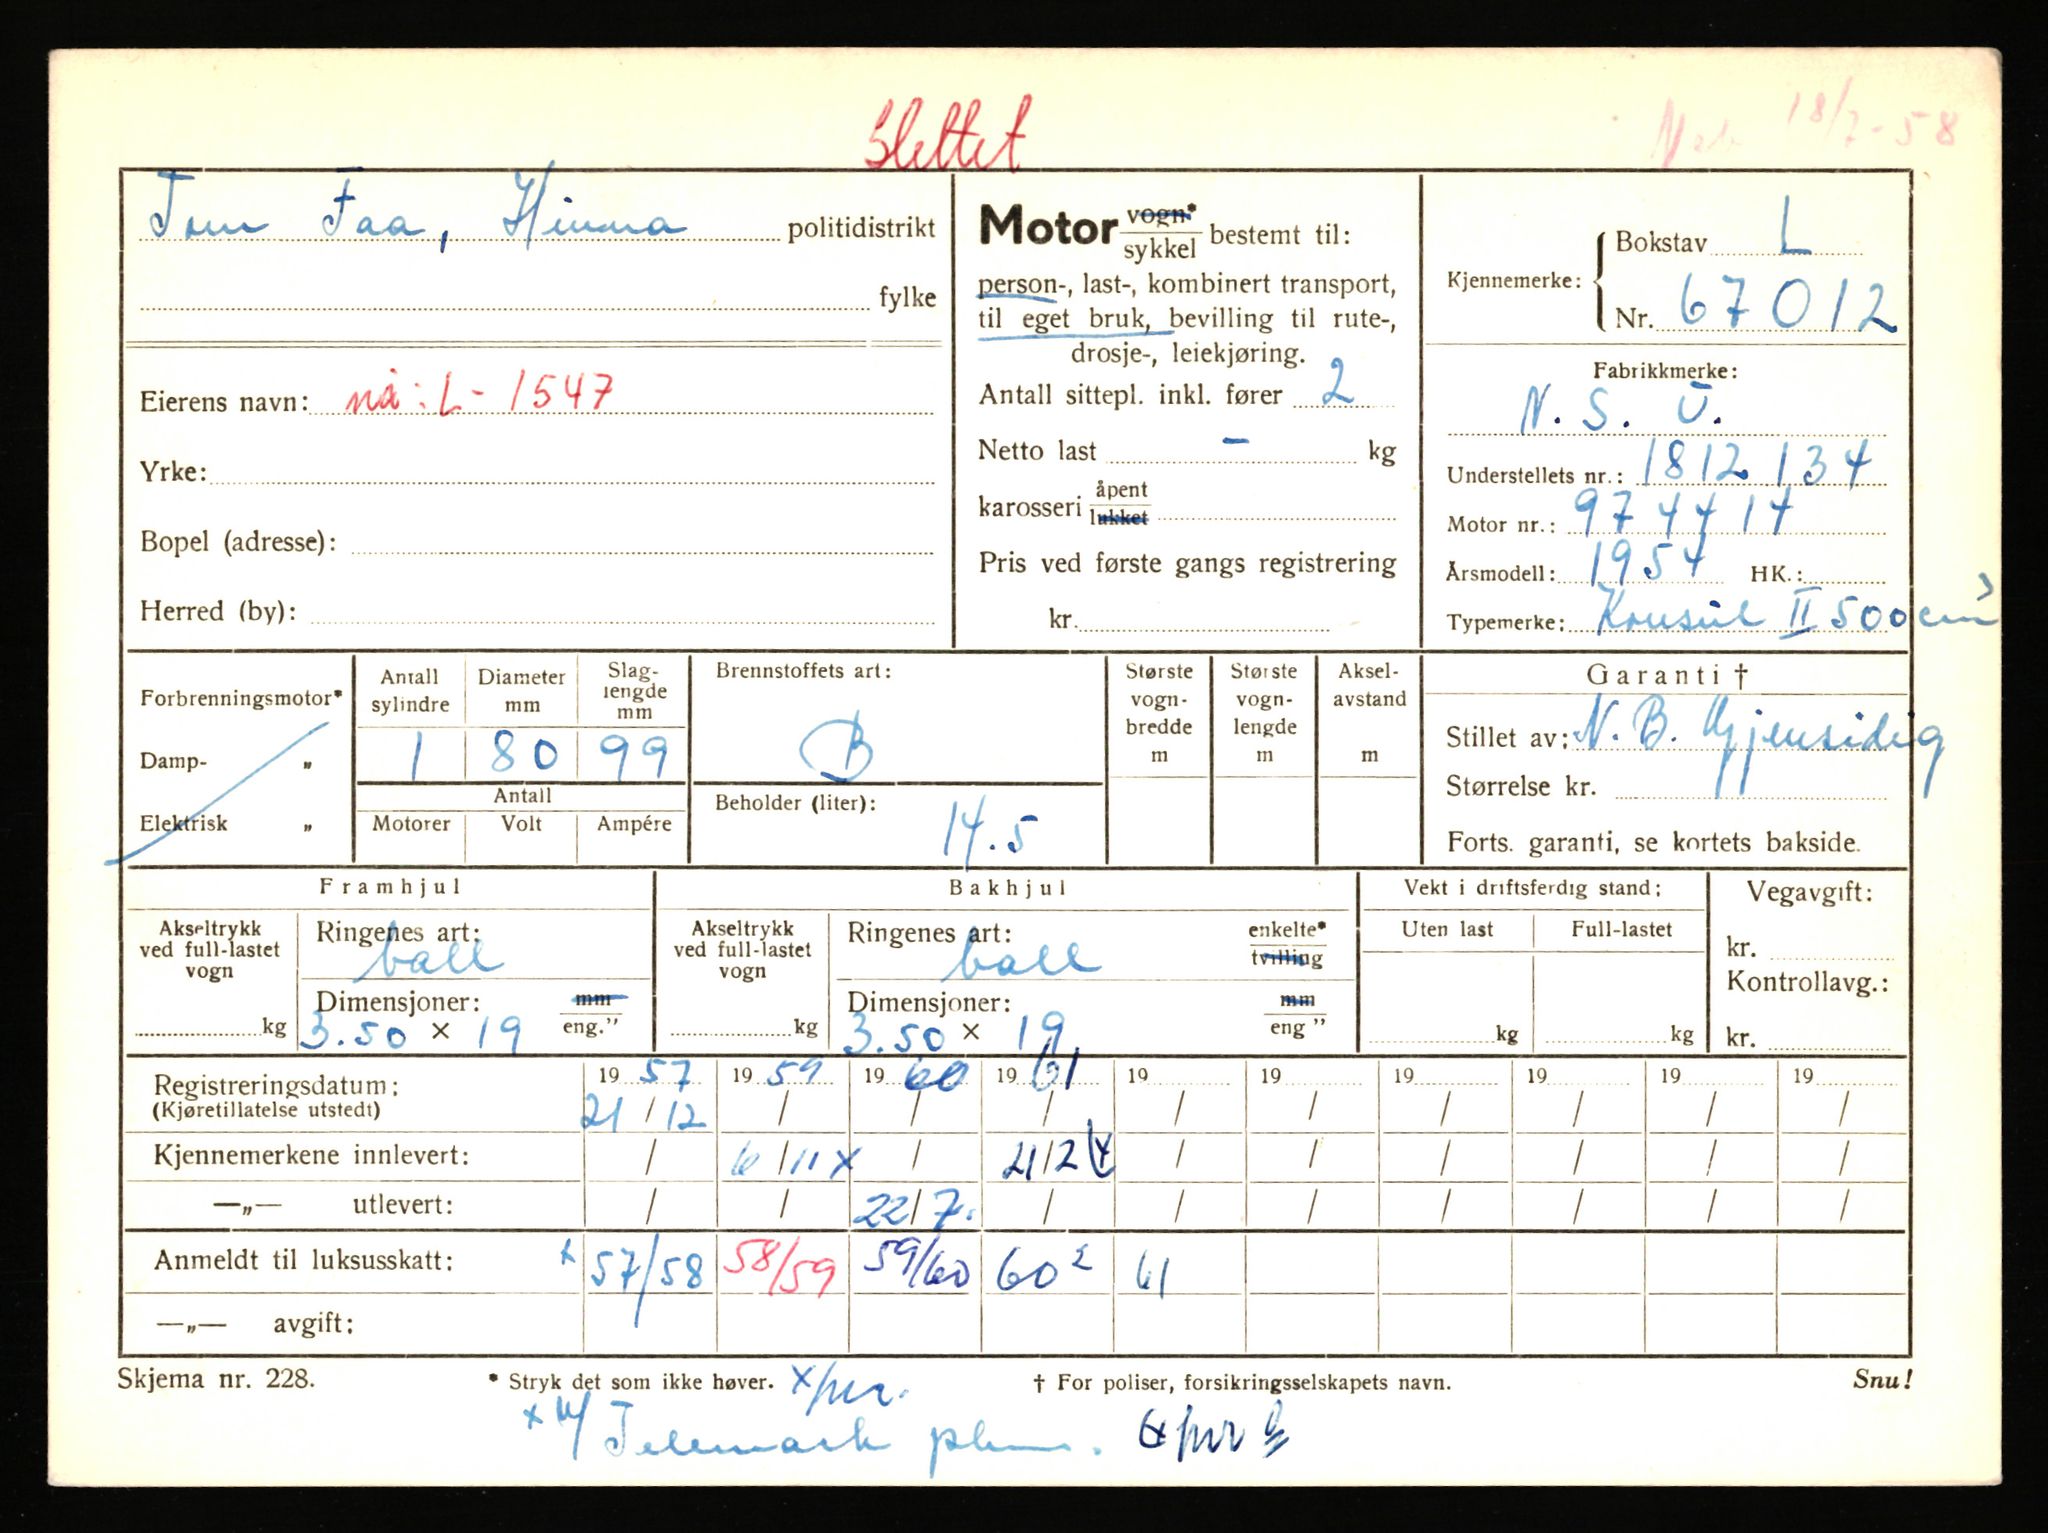 Slettet
18/7-58
Tom Faa, Hinna politidistrikt
fylke
Eierens navn: nå: L-1547
Yrke:
Bopel (adresse):
Herred (by):
Motor vogn* sykkel bestemt til:
person-, last-, kombinert transport,
til eget bruk, bevilling til rute-,
drosje-, leiekjøring.
Antall sittepl. inkl. fører 2
Netto last – kg
karosseri åpent lukket
Pris ved første gangs registrering
kr.
Kjennemerke: Bokstav L
Nr. 67012
Fabrikkmerke:
N. S. U.
Understellets nr.: 1812134
Motor nr.: 974414
Årsmodell: 1954 HK.:
Typemerke: Konsul II 500 cm³
Forbrenningsmotor*
Damp- „
Elektrisk „
Antall sylindre 1
Diameter mm 80
Slag-lengde mm 99
Antall
Motorer Volt Ampére
Brennstoffets art:
B
Beholder (liter):
14.5
Største vogn-bredde m
Største vogn-lengde m
Aksel-avstand m
Garanti †
Stillet av: N. B. Gjensidig
Størrelse kr.
Forts. garanti, se kortets bakside.
Framhjul
Akseltrykk ved full-lastet vogn
kg
Ringenes art:
ball
Dimensjoner: mm eng."
3.50 × 19
Bakhjul
Akseltrykk ved full-lastet vogn
kg
Ringenes art: enkelte* tvilling
ball
Dimensjoner: mm eng "
3.50 × 19
Vekt i driftsferdig stand:
Uten last Full-lastet
kg kg
Vegavgift:
kr.
Kontrollavg.:
kr.
Registreringsdatum: 19 57 19 59 19 60 19 61 19 19 19 19 19 19
(Kjøretillatelse utstedt) 21/12 / / / / / / / / /
Kjennemerkene innlevert: / 6/11 x / 21/2 x / / / / / /
—„— utlevert: / / 22/7. / / / / / / /
Anmeldt til luksusskatt: x 57/58 58/59 59/60 60² 61
—„— avgift:
Skjema nr. 228.
* Stryk det som ikke høver. x/
† For poliser, forsikringsselskapets navn.
Snu!
x Telemark